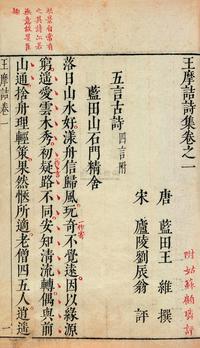 王摩詰詩集卷之一
唐 藍田王 維 撰
宋 廬陵劉辰翁 評
附姑蘇顧璘評
五言古詩 四言附
藍田山石門精舍
落日山水好漾舟信歸風玩奇不覺遠因以緣源
窮遥愛雲木秀初疑路不同安知清流轉偶與前
山通捨舟理輕策果然愜所適老僧四五人逍遥
王摩詰卷一
一